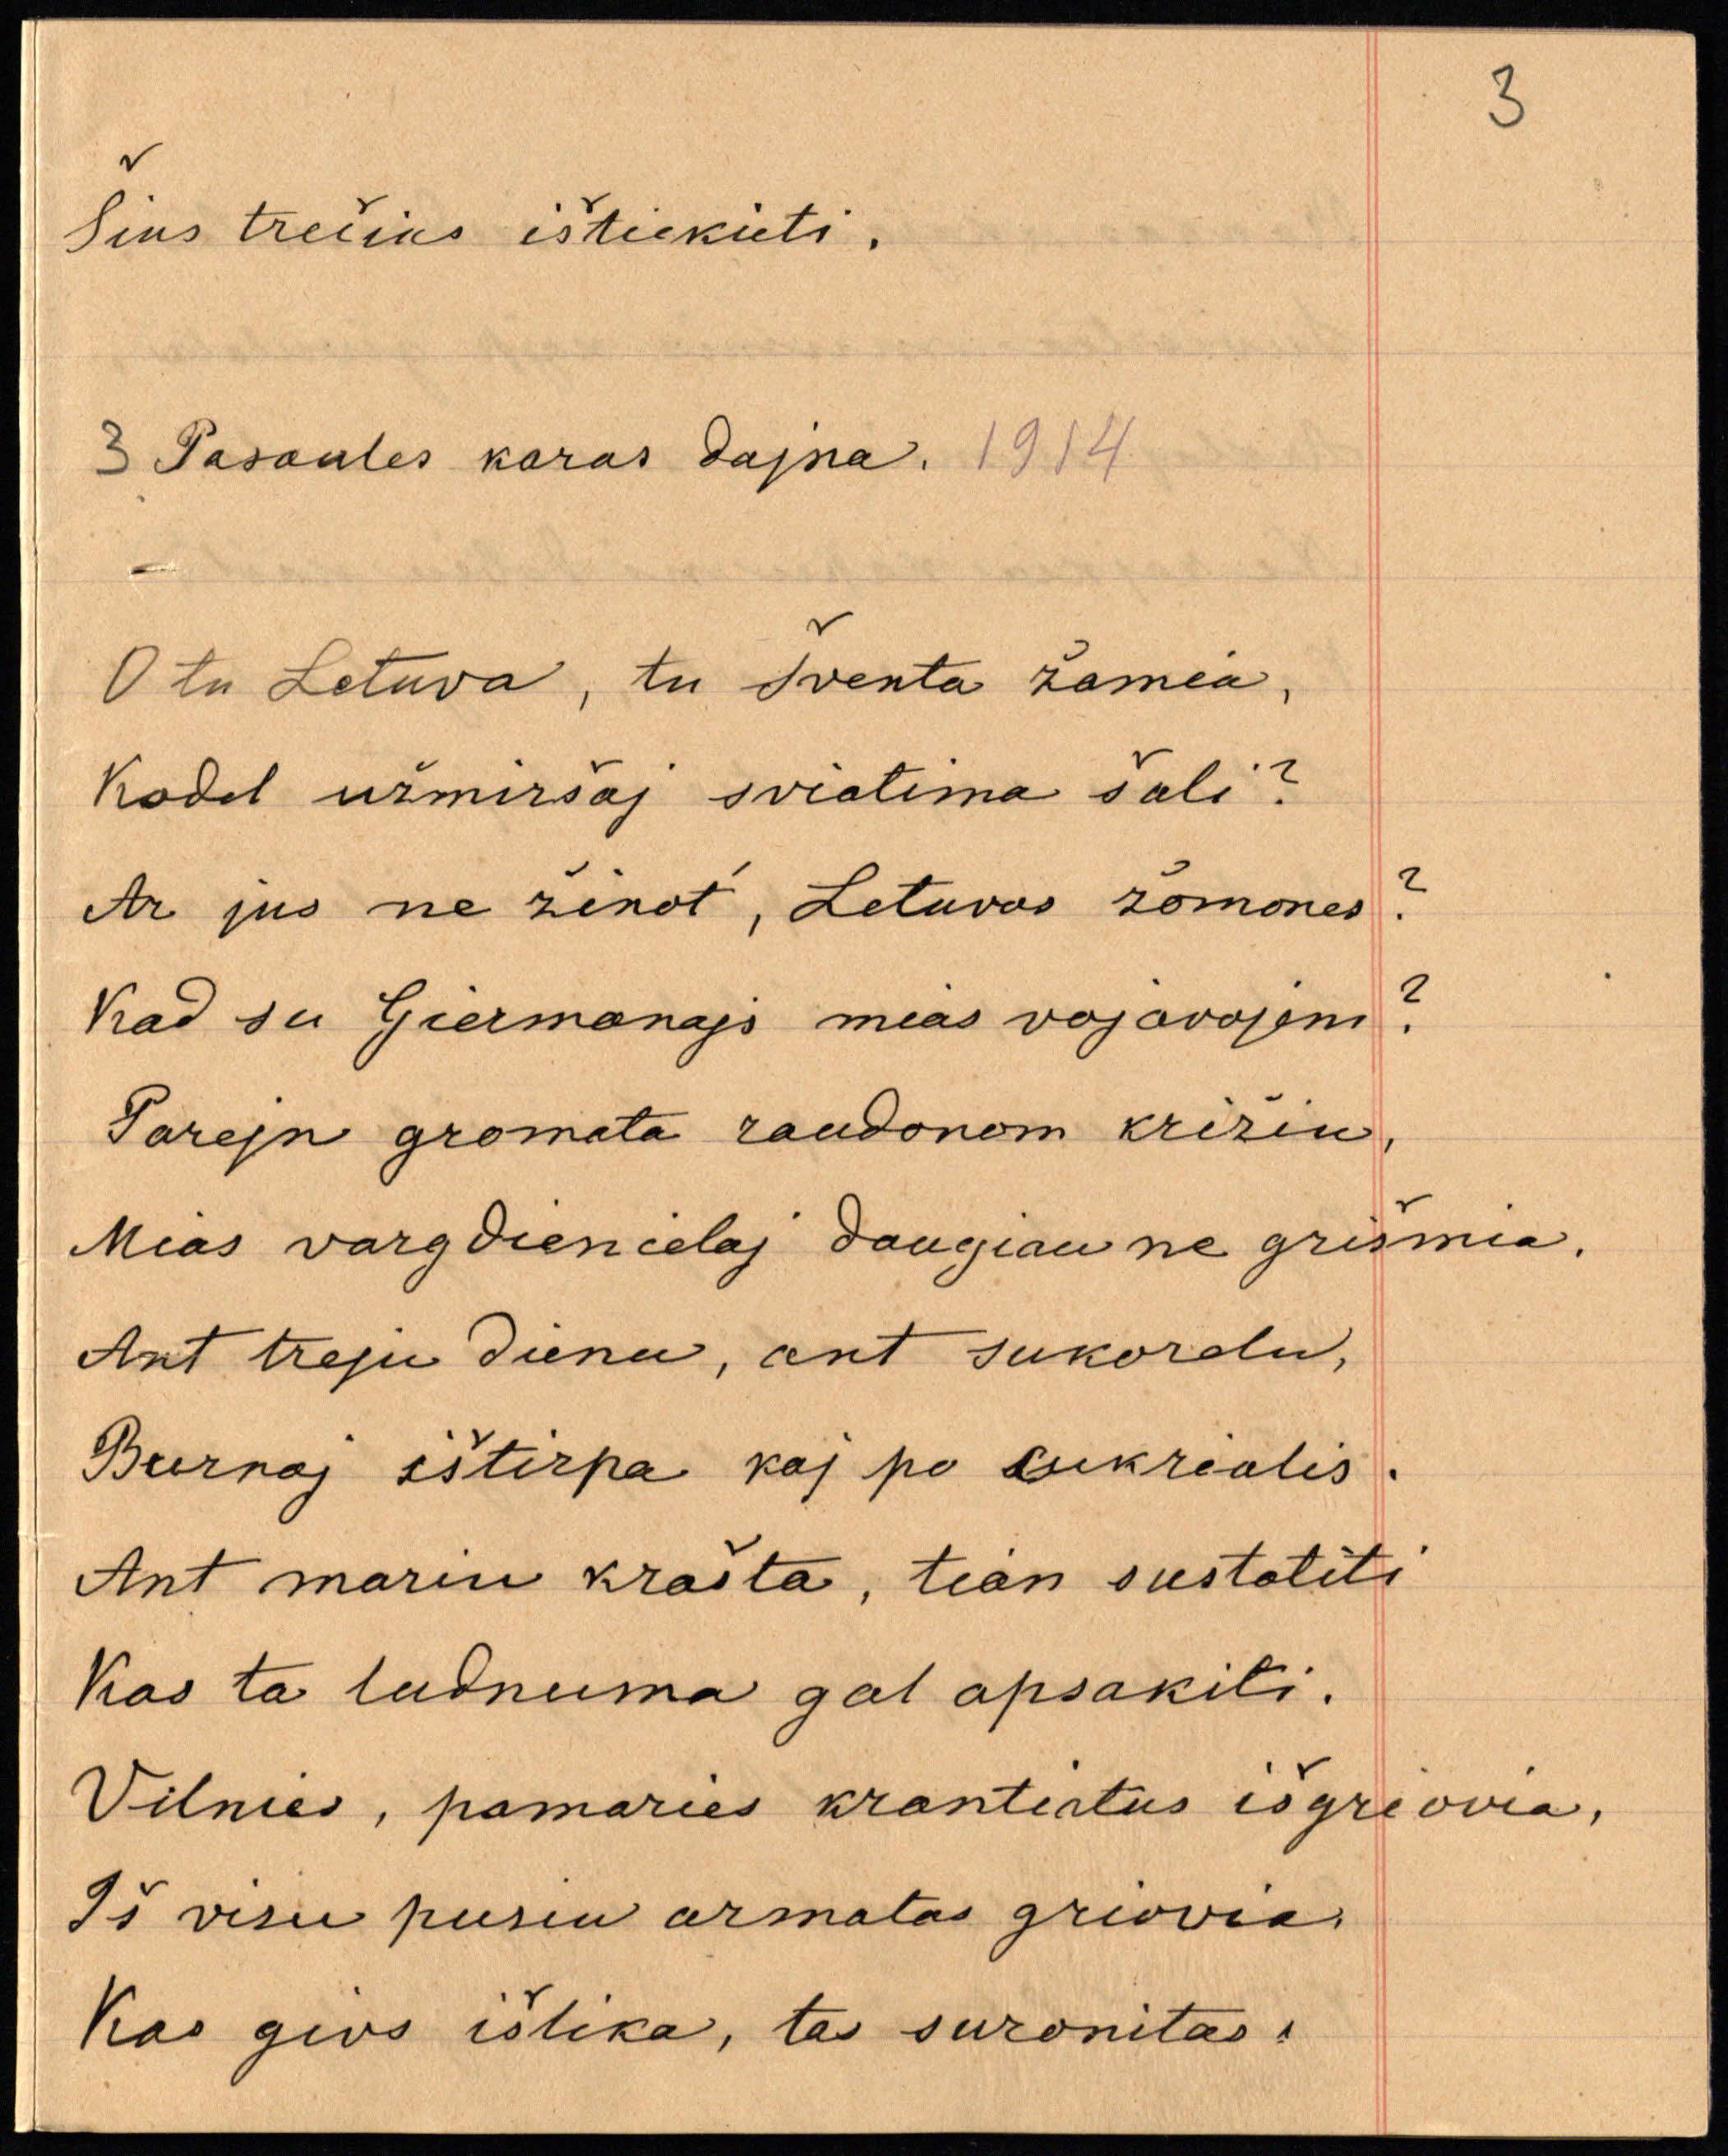 3
Šius trečius ištiekieti.
3 Pasaules karas dajna. 1914
O tu Letuva, tu šventa žamea,
Kodel užmiršaj sviatima šali?
Ar jus ne žinot, Letuvos žomones?
Kad su Giermanajs meas vojavojem?
Parejn gromata raudonom križiu,
Meas vargdiencelaj daugiau ne grišmia.
Ant treju dienu, ant sukorelu,
Burnaj ištirpa kaj po cukrialis.
Ant mariu krašta, tean sustatiti
Kas ta ludnuma gal apsakiti.
Vilnies, pamaries krantiatus išgriovia,
Iš visu pusiu armatas griovia.
Kas givs išlika, tas suronitas.